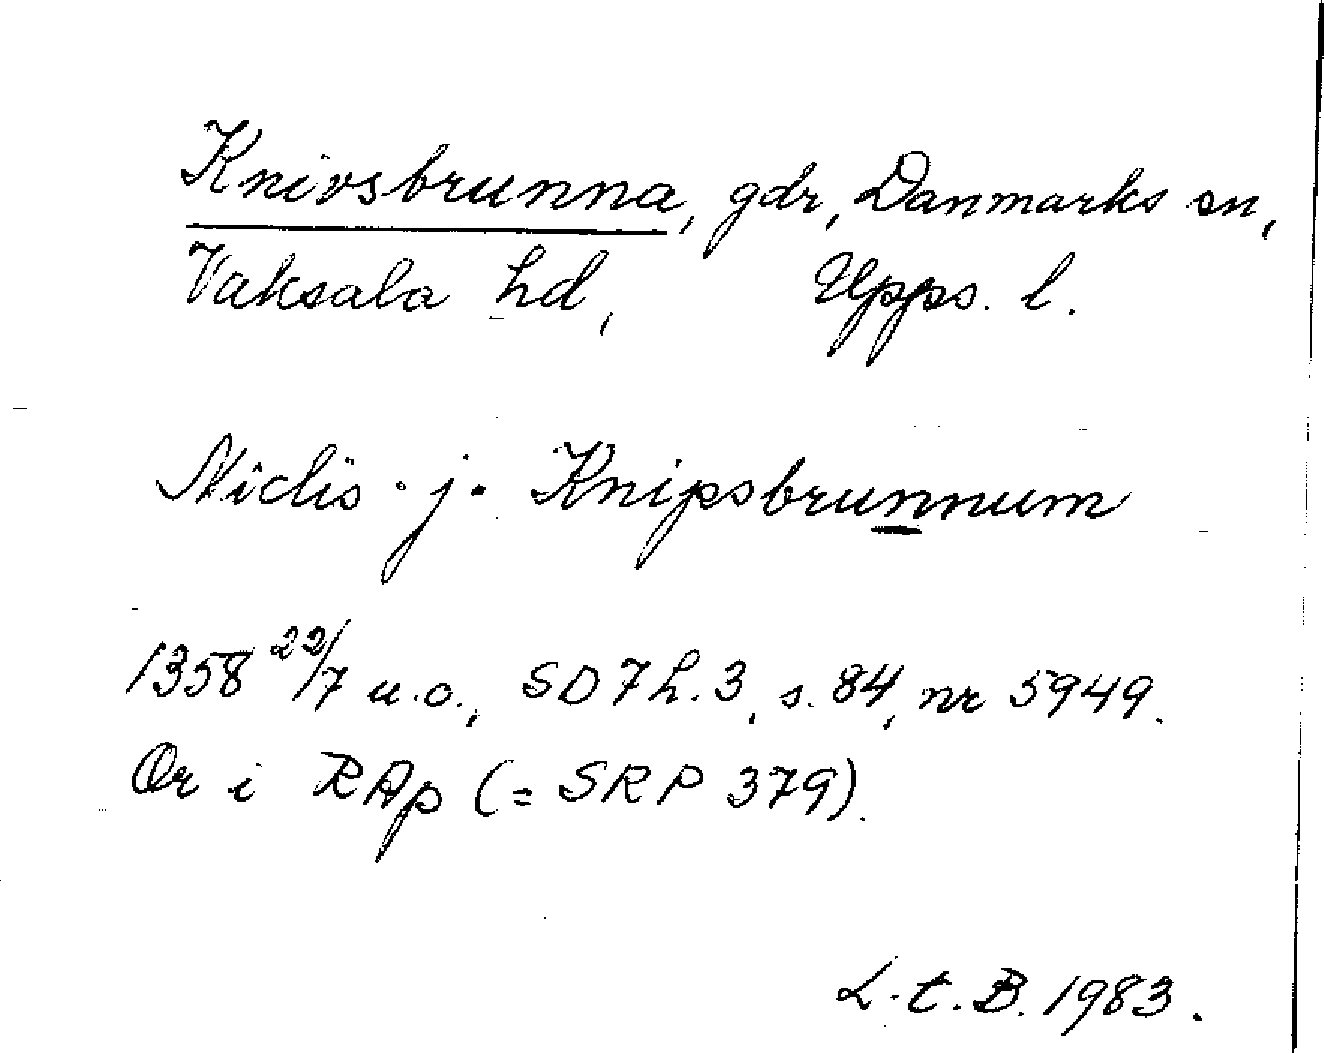 Knivsbrunna, gdr, Danmarks sn,
Vaksala hd, Upps. l.
Niclis · j · Knipsbrunnum
1358 22/7 u.o., SD 7 h. 3, s. 84, nr 5949.
Or i RAp (= SRP 379).
L. t. B. 1983.